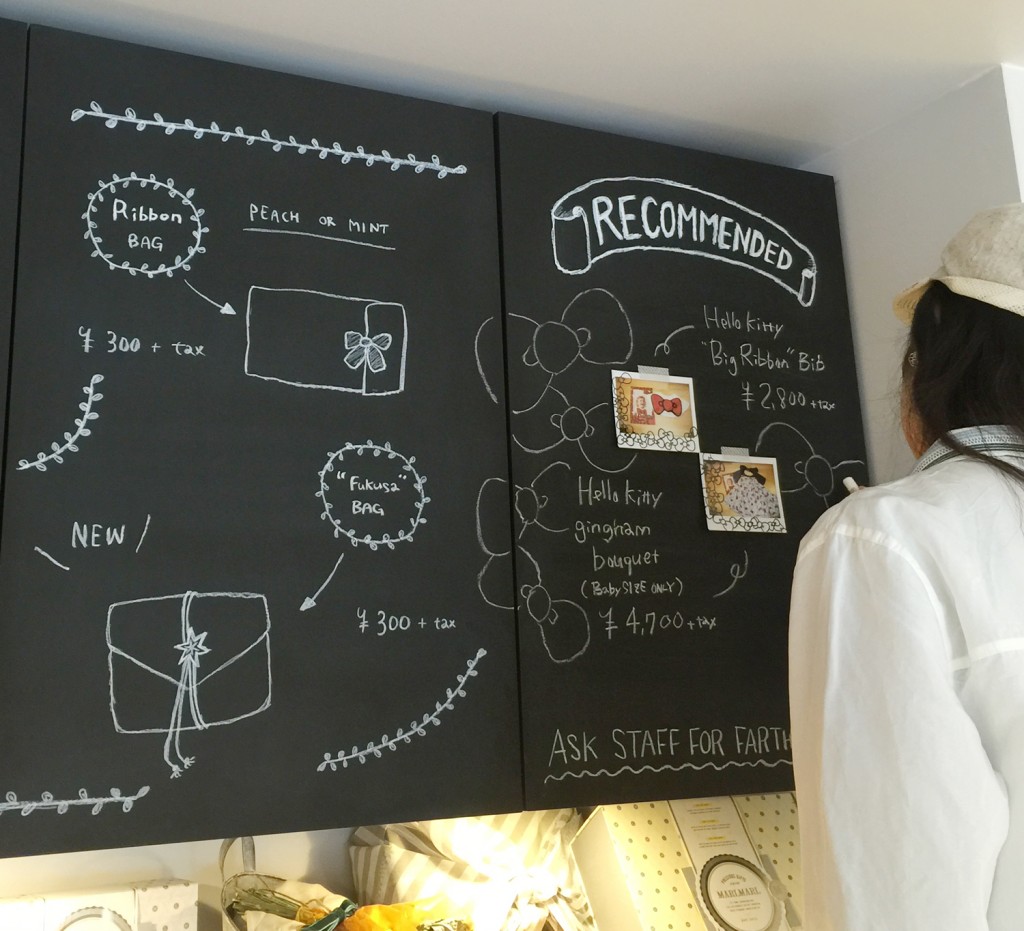 Ribbon
BAG
PEACH OR MINT
¥300 + tax
"Fukusa"
BAG
NEW
¥300 + tax
RECOMMENDED
Hello Kitty
"Big Ribbon" Bib
¥2,800 + tax
Hello Kitty
gingham
bouquet
(Baby SIZE ONLY)
¥4,700 + tax
ASK STAFF FOR FARTH
MARLMARL